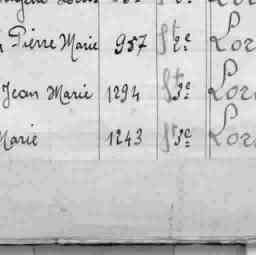 Pierre Marie 957 St 2e Lor
Jean Marie 1294 St 3e Lor
Marie 1243 St 3e Lor